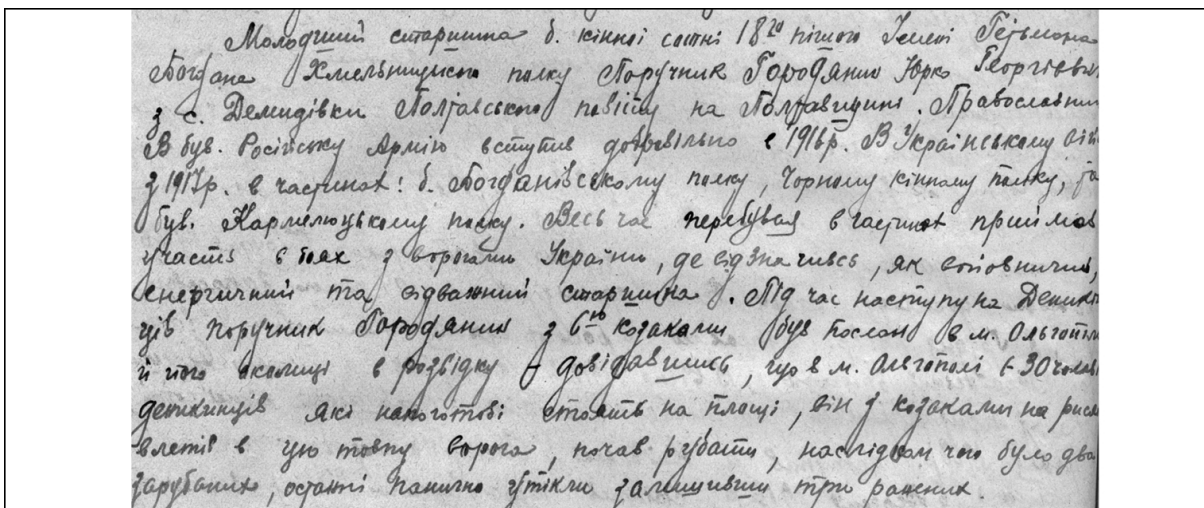 Молодший старшина б. кінної сотні 18го пішого Імені Гетьмана
Богдана Хмельницького полку Поручник Городянин Юрко Георгієвич
з с. Демидівки Полтавського повіту на Полтавщині. Православний
В був. Російську Армію вступив добровільно в 1916р. В Українському війс
з 1917р. в частинах: б. Богданівському полку, Чорному кінному полку, та
був. Кармелюцькому полку. Весь час перебував в частинах приймав
участь в боях з ворогами України, де відзначивсь, як войовничий,
енергичний та відважний старшина. Під час наступу на Деникін
ців поручник Городянин з 6тю козаками був послан в м. Ольгопіль
й його околиці в розвідку й довідавшись, що в м. Ольгополі є 30 чолові
деникинців які напоготові стоять на площі, він з козаками на рисях
влетів в цю товпу ворога, почав рубати, наслідком чого було два
зарубаних, останні панично утікли залишивши три ранених.